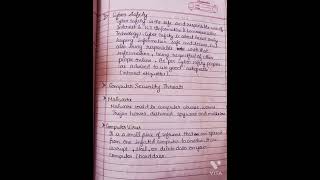 Cyber Safety
Cyber safety is the safe and responsible use of
Internet & ICT (Information & Communication
Technology). Cyber safety is about
keeping information safe and secure, but
also being responsible with that
information, being respectful of other
people online. As per Cyber safety peoples
are advised to use good
(internet etiquettes).
Computer Security Threats
Malware
Malware could be computer viruses, worms,
Trojan horses, dishonest spyware and
Computer Virus
It is a small piece of software that can spread
from one infected computer to another. It can
corrupt, steal, or delete data on your
computer / hard drive.
VN